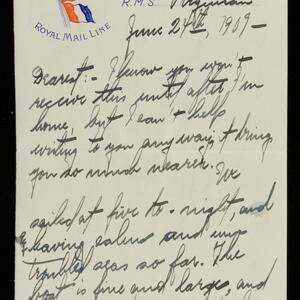 R.M.S. Virginian
ROYAL MAIL LINE
June 24th, 1909 -
Dearest:- I know you won't
receive this until after I'm
home, but I can't help
writing to you anyway, it brings
you so much nearer. We
sailed at five to-night, and
having calm and un-
troubled seas so far. The
boat is fine and large, and